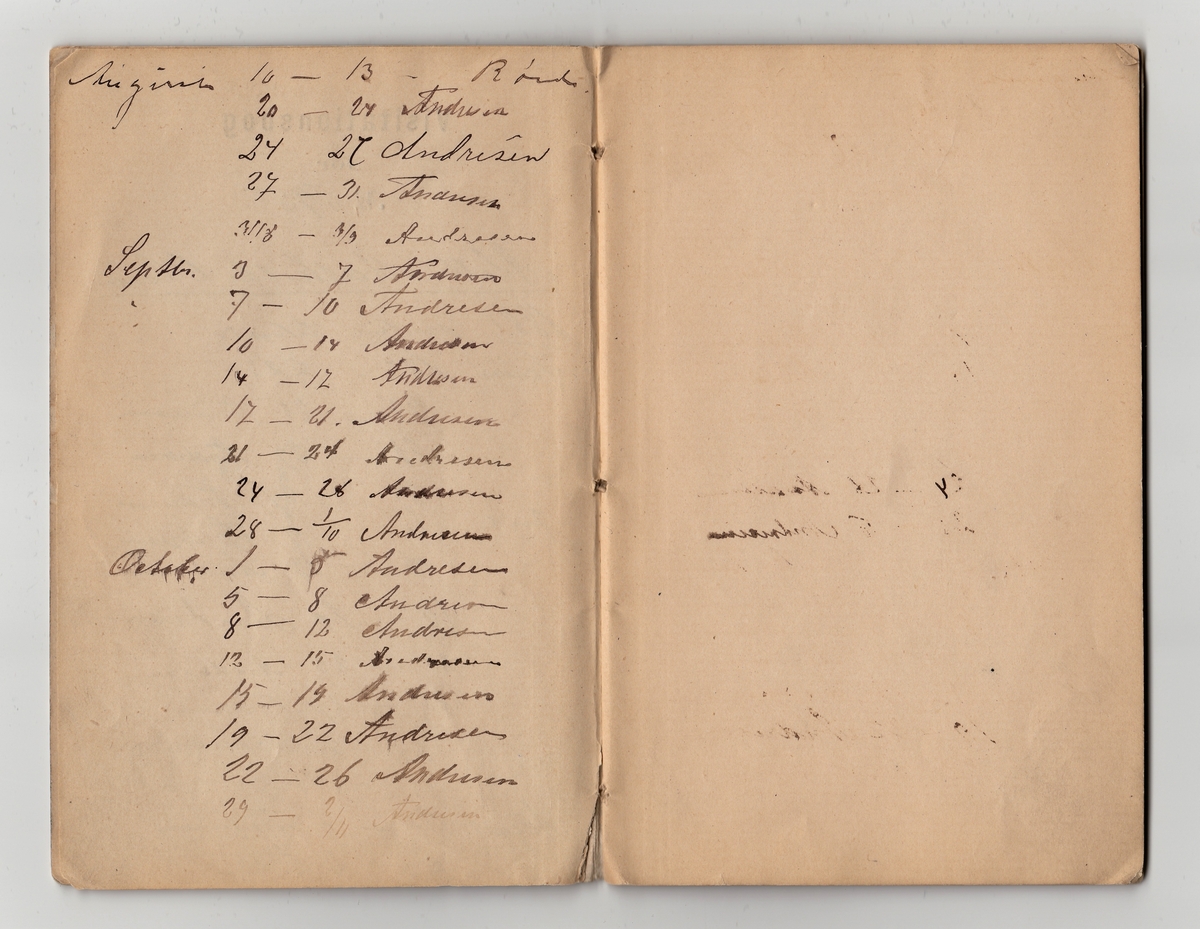 August 10 — 13 -
20 — 24 Andresen
24 27 Andresen
27 — 31. Andresen
31/8 — 3/9 Andresen
Septbr. 3 — 7 Andresen
" 7 — 10 Andresen
10 — 14 Andresen
14 — 17 Andresen
17 — 21. Andresen
21 — 24 Andresen
24 — 28 Andresen
28 — 1/10 Andresen
October 1 — 5 Andresen
5 — 8 Andresen
8 — 12 Andresen
12 — 15 Andresen
15 — 19 Andresen
19 — 22 Andresen
22 — 26 Andresen
29 — 2/11 Andresen